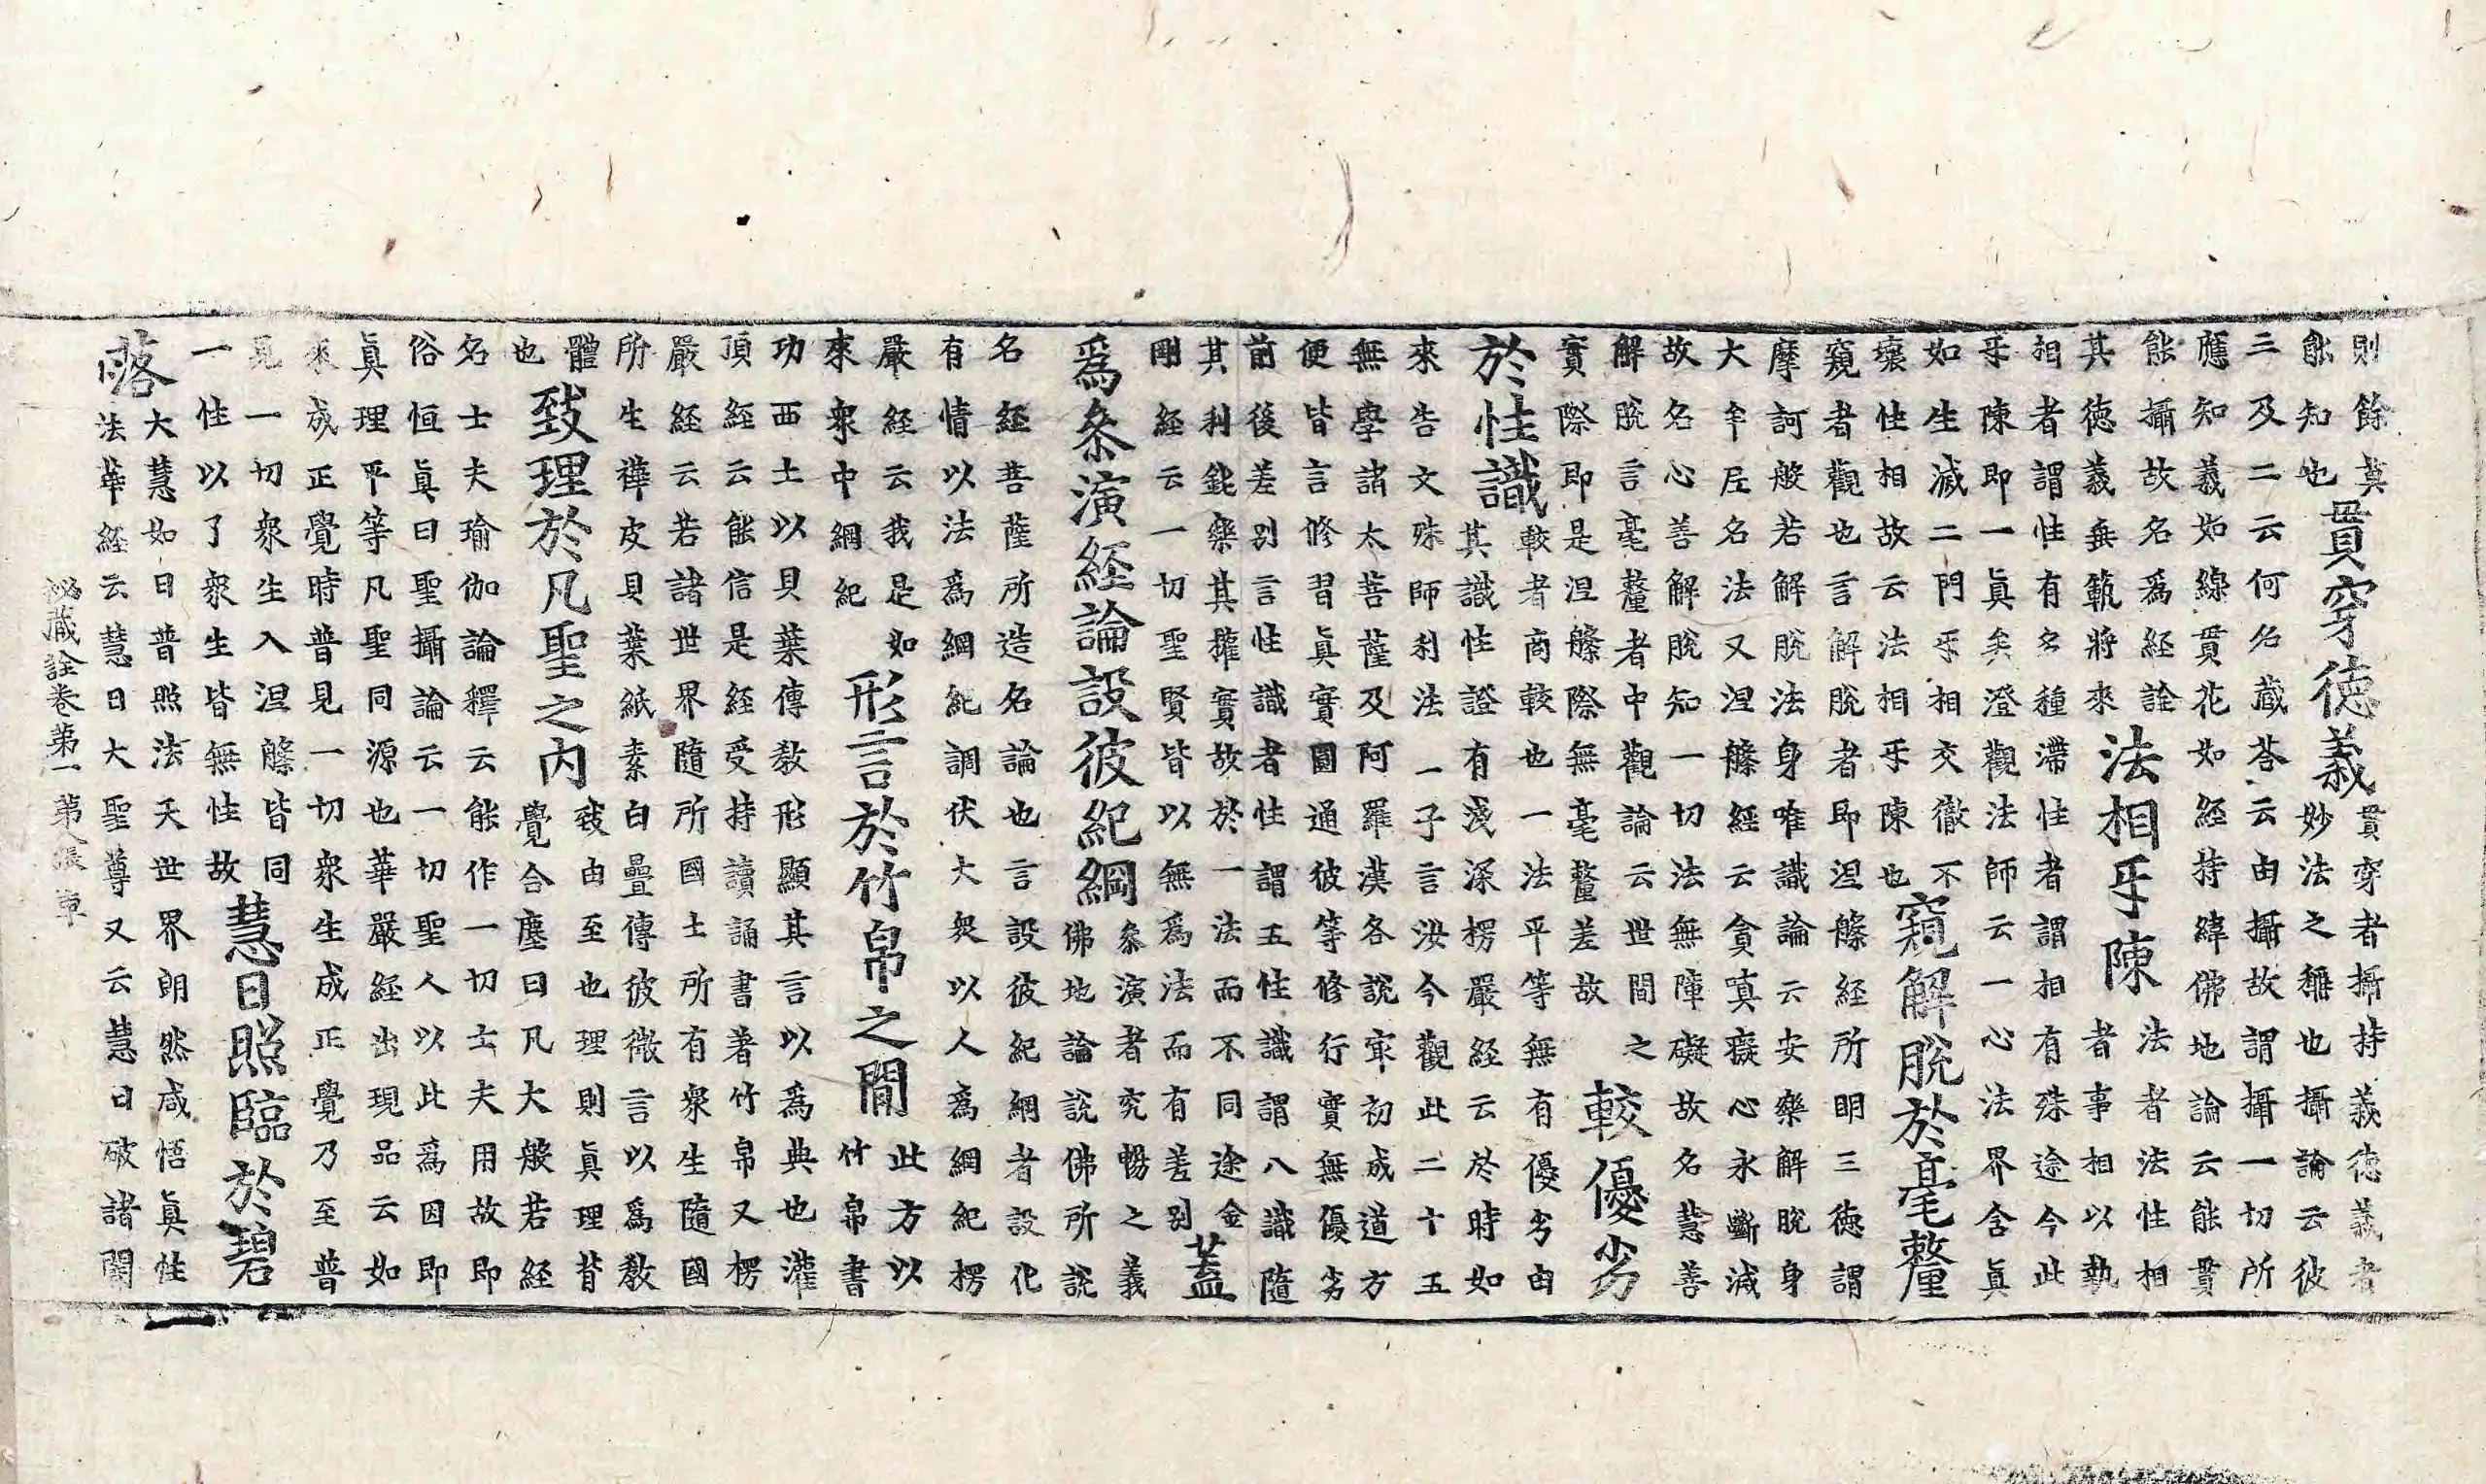 則餘莫
能知也
貫穿德義
貫穿者攝持義德義者
妙法之稱也攝論云彼
三及二云何名藏荅云由攝故謂攝一切所
應知義如線貫花如経持緯佛地論云能貫
能攝故名爲経詮
其德義垂範將來
法相㸦陳
法者法性相
者事相以執
相者謂性有多種滯性者謂相有殊途今此
㸦陳即一眞矣澄觀法師云一心法界含眞
如生滅二門㸦相交徹不
壞性相故云法相㸦陳也
窺解脫於毫釐
窺者觀也言解脫者即涅槃経所明三德謂
摩訶般若解脫法身唯識論云安樂解脫身
大牟尼名法又涅槃経云貪嗔癡心永斷滅
故名心善解脫知一切法無障礙故名慧善
解脫言毫釐者中觀論云世間之
實際即是涅槃際無毫釐差故
較優劣
於性識
較者商較也一法平等無有優劣由
其識性證有淺深楞嚴経云於時如
來告文殊師利法一子言汝今觀此二十五
無學諸大菩薩及阿羅漢各說㝡初成道方
便皆言修習眞實圓通彼等修行實無優劣
前後差別言性識者性謂五性識謂八識隨
其利鈍樂其權實故於一法而不同途金
剛経云一切聖賢皆以無爲法而有差別
蓋
爲叅演経論設彼紀綱
叅演者究暢之義
佛地論說佛所說
名経菩薩所造名論也言設彼紀綱者設化
有情以法爲綱紀調伏大衆以人爲綱紀楞
嚴経云我是如
來衆中綱紀
形言於竹帛之間
此方以
竹帛書
功西土以貝葉傳教形顯其言以爲典也灌
頂経云能信是経受持讀誦書著竹帛又楞
嚴経云若諸世界隨所國土所有衆生隨國
所生樺皮貝葉紙素白疊傳彼微言以爲教
體
也
致理於凡聖之内
致由至也理則眞理背
覺合塵曰凡大般若経
名士夫瑜伽論釋云能作一切士夫用故即
俗恒眞曰聖攝論云一切聖人以此爲因即
眞理平等凡聖同源也華嚴経出現品云如
來成正覺時普見一切衆生成正覺乃至普
見一切衆生入涅槃皆同
一性以了衆生皆無性故
慧日照臨於碧
落
大慧如日普照法天世界朗然咸悟眞性
法華経云慧日大聖尊又云慧日破諸闇
祕藏詮卷第一 第八張 車